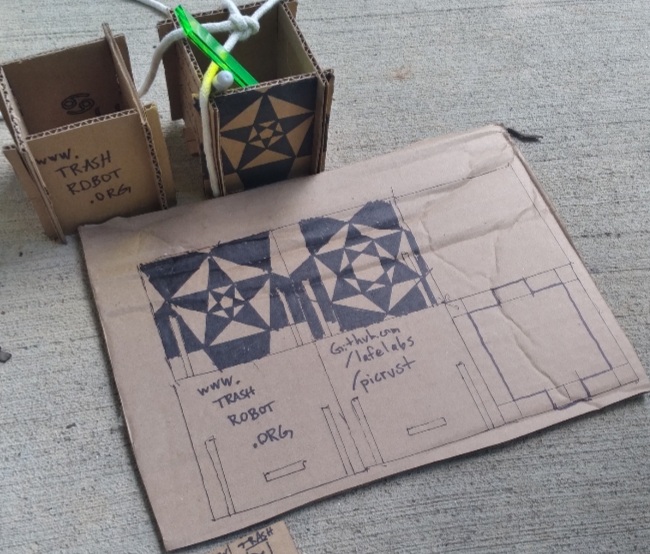 www.
TRASH
ROBOT
.ORG
www.
TRASH
ROBOT
.ORG
Github.com
/lafelabs
/picrust
TRASH